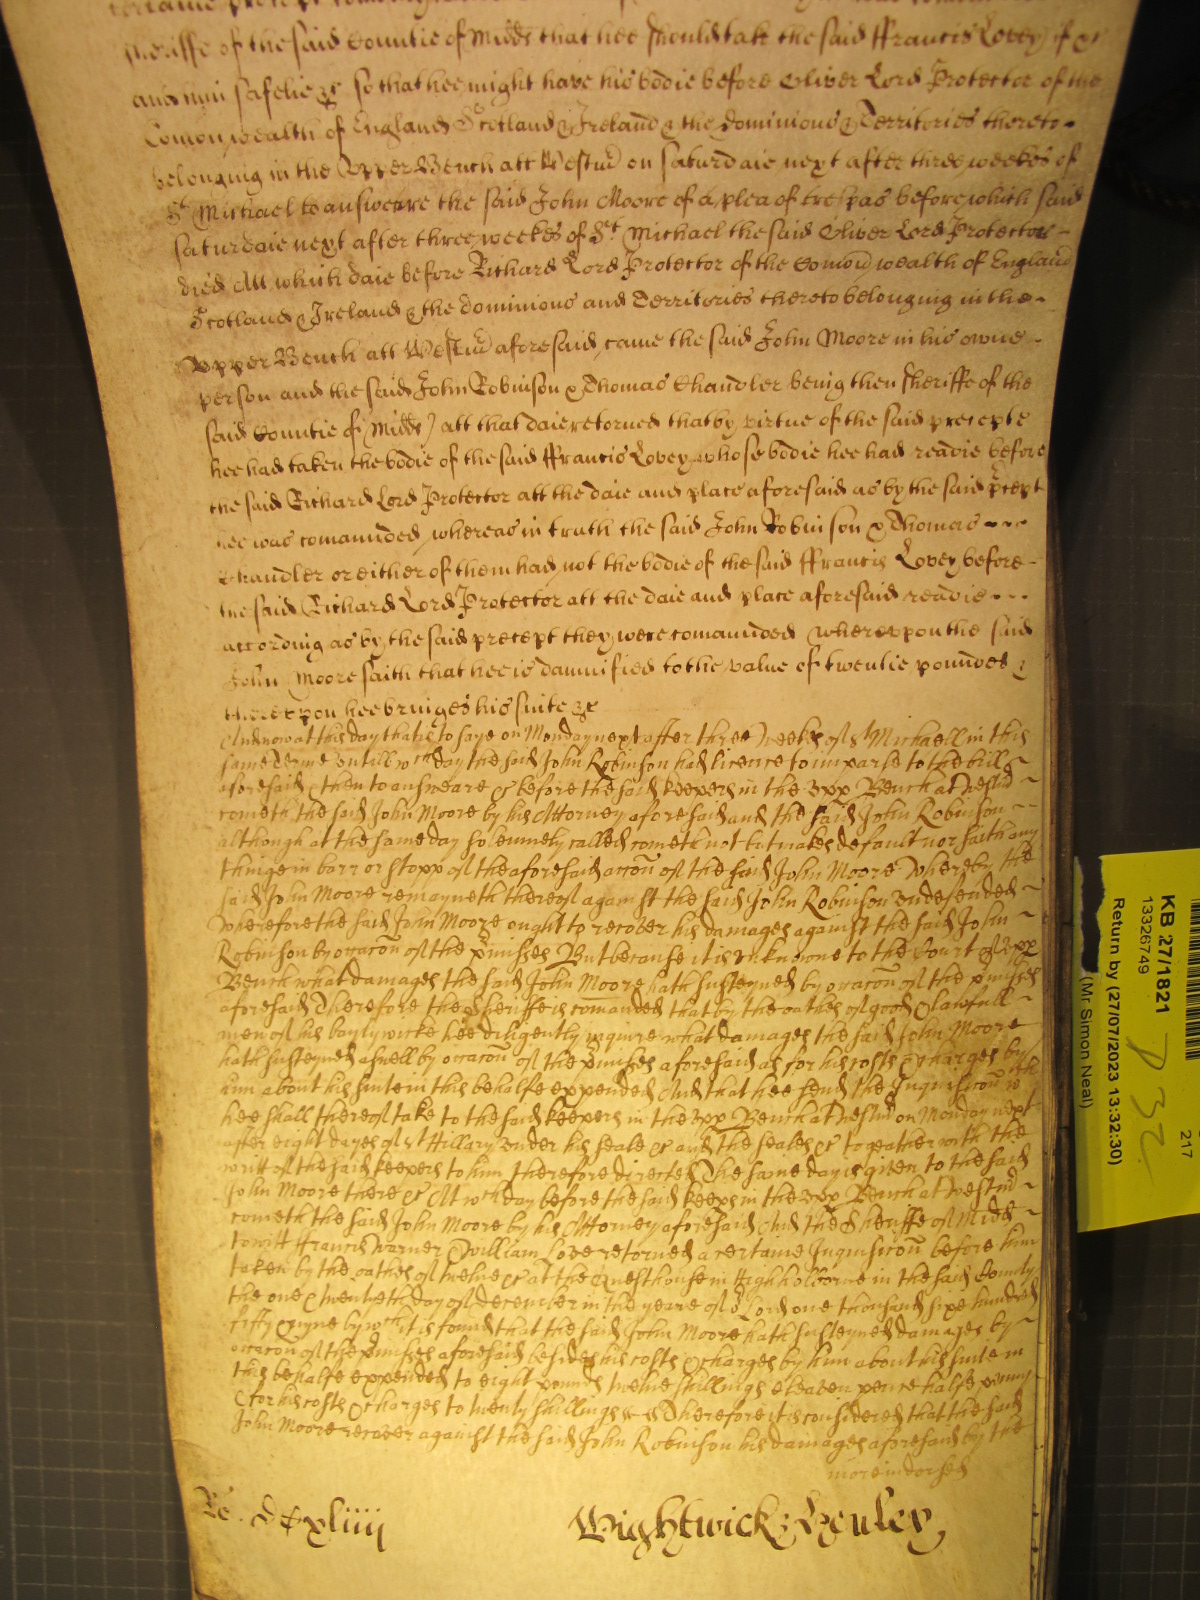 Sheriffe of the said Countie of Midds that hee should take the said ffrancis Lovey if &c
and him safelie &c so that hee might have his bodie before Oliver Lord Protector of the
Comonwealth of England Scotland & Ireland & the dominions & Territories thereto
belonging in the Upper Bench att Westm on Saturdaie next after three weekes of
St Michael to answeare the said John Moore of a plea of trespas before which said
saturdaie next after three weekes of St Michael the said Oliver Lord Protector
died Att which daie before Richard Lord Protector of the Comon wealth of England
Scotland & Ireland & the dominions and Territories thereto belonging in the
Upper Bench att Westm aforesaid came the said John Moore in his owne
person and the said John Robinson & Thomas Chandler being then sheriffe of the
said Countie of Midds att that daie retorned that by virtue of the said precepte
hee had taken the bodie of the said ffrancis Lovey whose bodie hee had readie before
the said Richard Lord Protector att the daie and place aforesaid as by the said prcept
hee was comaunded whereas in truth the said John Robinson & Thomas
Chandler or either of them had not the bodie of the said ffrancis Lovey before
the said Richard Lord Protector att the daie and place aforesaid readie
according as by the said precept they were comaunded wherevpon the said
John Moore saith that hee is damnified to the value of twentie poundes &
therevpon hee bringes his suite &c
And now at this day that is to saye on Monday next after three weekes of St Michaell in this
same Terme vntill wch day the said John Robinson had licence to imparle to the bill
aforesaid & then to answeare &c before the said keepers in the Vpp Bench at Westm
cometh the said John Moore by his Attorney aforesaid and the said John Robinson
although at the same day solemnely called cometh not but makes default nor saith any
thinge in barr or stopp of the aforesaid accon of the said John Moore Whereby the
said John Moore remayneth thereof against the said John Robinson vndefended
Wherefore the said John Moore ought to recover his damages against the said John
Robinson by occacon of the pmisses But because it is vnknowne to the Court of Vpp
Bench what damages the said John Moore hath susteyned by occacon of the pmisses
aforesaid Therefore the Sheriffe is comanded that by the oathes of good & lawfull
men of his baylywicke hee diligently inquire what damages the said John Moore
hath susteyned aswell by occacon of the pmisses aforesaid as for his costs & charges by
him about his suite in this behalfe expended And that hee send the Inquisicon wch
hee shall thereof take to the said keepers in the Vpp Bench at Westm on Monday next
after eight dayes of St Hillary vnder his seale &c and the seales &c togeather with the
writt of the said keepers to him therefore directed The same day is given to the said
John Moore there &c At wch day before the said keeps in the Vpp Bench at Westm
cometh the said John Moore by his Attorney aforesaid And the Sheriffe of Midd
towitt ffrancis Warner & William Love retorned a certaine Inquisicon before him
taken by the oathes of twelve &c at the Questhouse in Highholborne in the said County
the one & twentyeth day of december in the yeare of or Lord one thousand sixe hundred
fifty & nyne by wch it is found that the said John Moore hath susteyned damages by
occacon of the pmisses aforesaid besides his costs & charges by him about his suite in
this behalfe expended to eight pounds twelve shillings eleaven pence halfe penny
& for his costs & charges to twenty shillings Therefore it is considered that the said
John Moore recover against the said John Robinson his damages aforesaid by the
more indorsed
Ro. dcxliiij
Wightwick: Henley
KB 27/1821
13326749
Return by (27/07/2023 13:32:30)
(Mr Simon Neal)
217